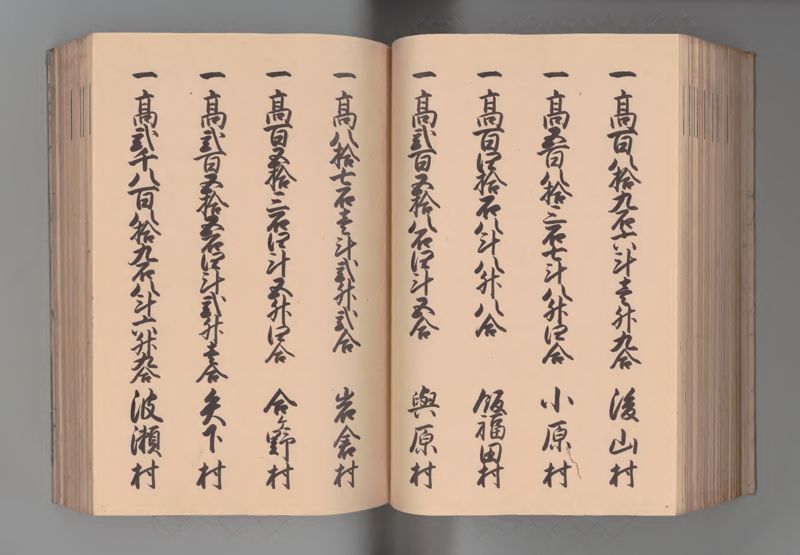 一高百八拾九石六斗壱升九合 後山村
一高五百八拾三石七斗八升四合 小原村
一高百四拾石八斗八升八合 飯福田村
一高弐百五拾八石四斗五合 與原村
一高八拾七石壱斗弐升弐合 岩倉村
一高百五拾三石四斗五升四合 合ヶ野村
一高弐百五拾五石四斗弐升壱合 矢下村
一高弐千八百八拾九石八斗六升九合 波瀬村